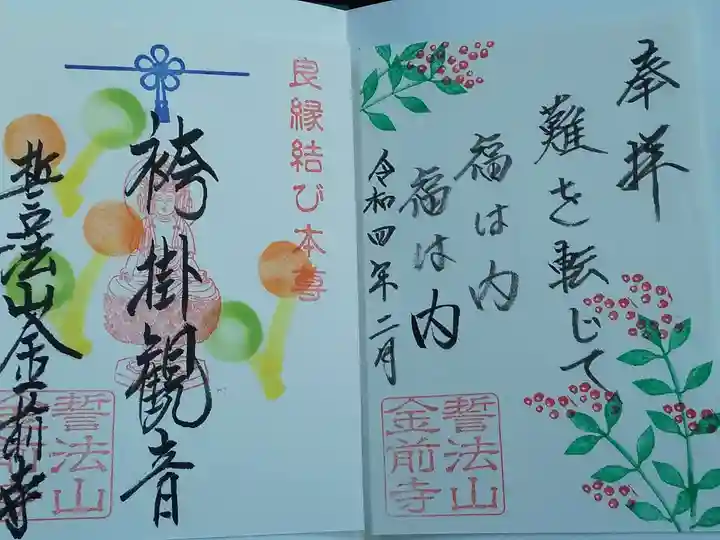 奉拝
難を転じて
福は内
福は内
令和四年二月
誓法山
金前寺
良縁結び本尊
袴掛観音
誓法山金前寺
誓法山
金前